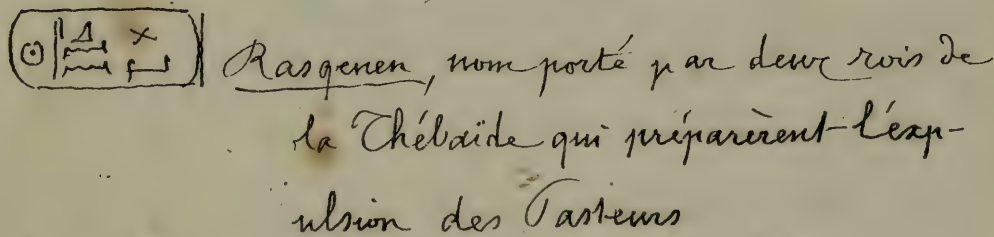 Rasqenen, nom porté par deux rois de
la Thébaïde qui préparèrent l'exp-
ulsion des Pasteurs